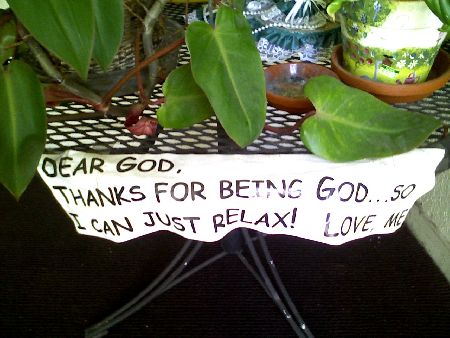 DEAR GOD,
THANKS FOR BEING GOD...SO
I CAN JUST RELAX! LOVE, ME